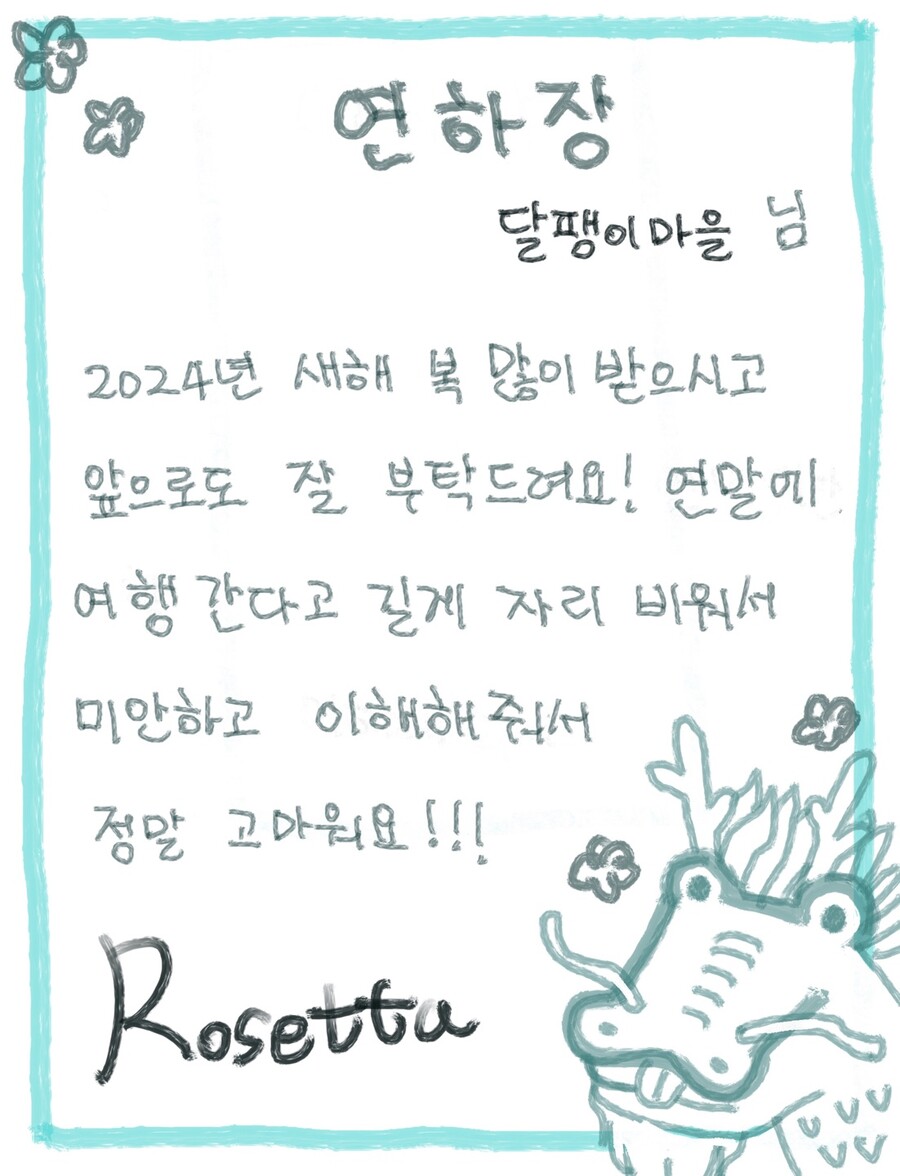 연하장
달팽이마을 님
2024년 새해 복 많이 받으시고
앞으로도 잘 부탁드려요! 연말에
여행 간다고 길게 자리 비워서
미안하고 이해해줘서
정말 고마워요!!!
Rosetta